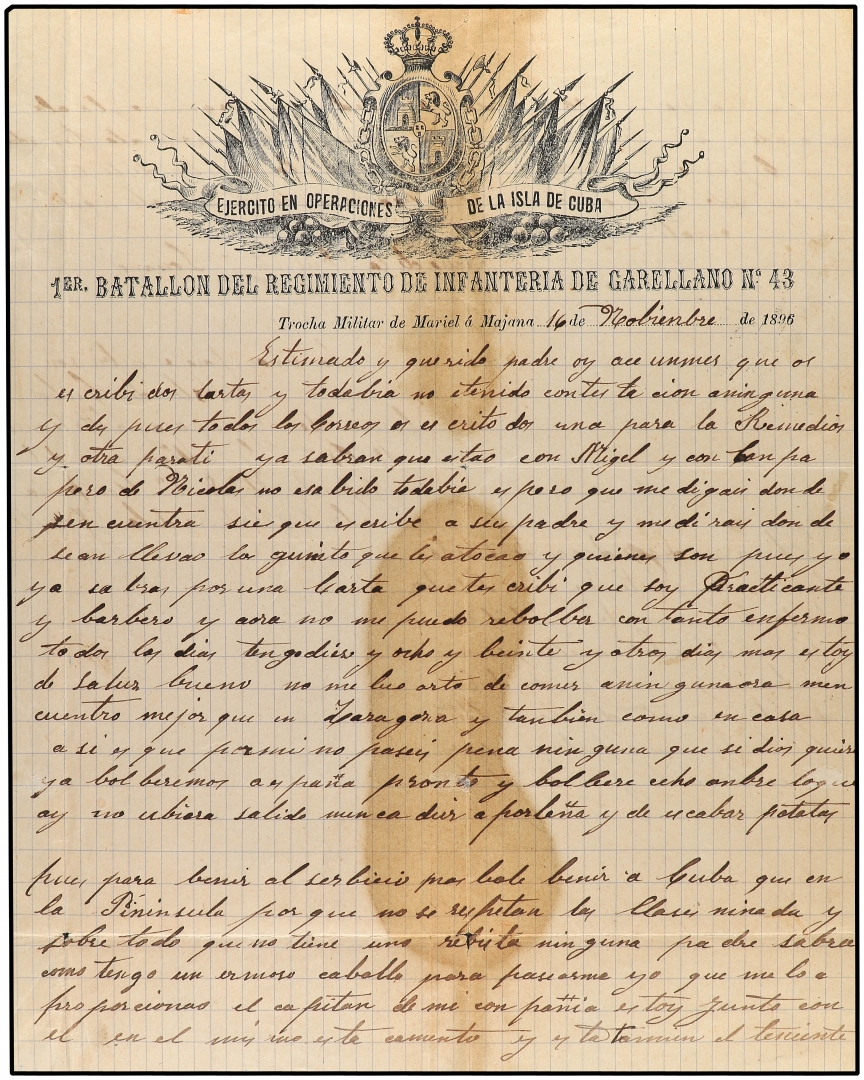 EJERCITO EN OPERACIONES DE LA ISLA DE CUBA
1ER. BATALLON DEL REGIMIENTO DE INFANTERIA DE GARELLANO Nº 43
Trocha Militar de Mariel á Majana 16 de Nobienbre de 1896
Estimado y querido padre oy ace unmes que os
escribi dos Cartas y todabia no etenido contestacion aninguna
y des pues todos los Correos os escrito dos una para la Remedios
y otra parati ya sabran que estao con Migel y con
pero de Nicolas no esabido todabia espero que me digais donde
sen cuentra sies que escribe a seu padre y me dirais don de
sean llevao los quinto que les atocao y quienes son pues yo
ya sabras por una Carta que tes cribi que soy Practicante
y barbero y aora no me puedo rebolber con tanto enfermo
todos los dias tengo diez y ocho y beinte y otros dias mas estoy
de salur bueno no me beo arto de comer aningunaora men
cuentro mejor que en Zaragoza y tanbien como en casa
a si es que pormi no paseis pena ninguna que si dios quiere
ya bolberemos a españa pronto y bolbere echo onbre loque
ay no ubiera salido nunca dir a porleña y de escabar patatas
pues para benir al serbicio mas bale benir a Cuba que en
la Pininsula por que no se respetan las Clases ninada y
sobre todo que no tiene uno rebista ninguna padre sabra
como tengo un ermoso caballo para pasearme yo que me lo a
proporcionao el capitan de mi conpañia estoy junto con
el en el mismo esta camento y es ta tamien el teniente